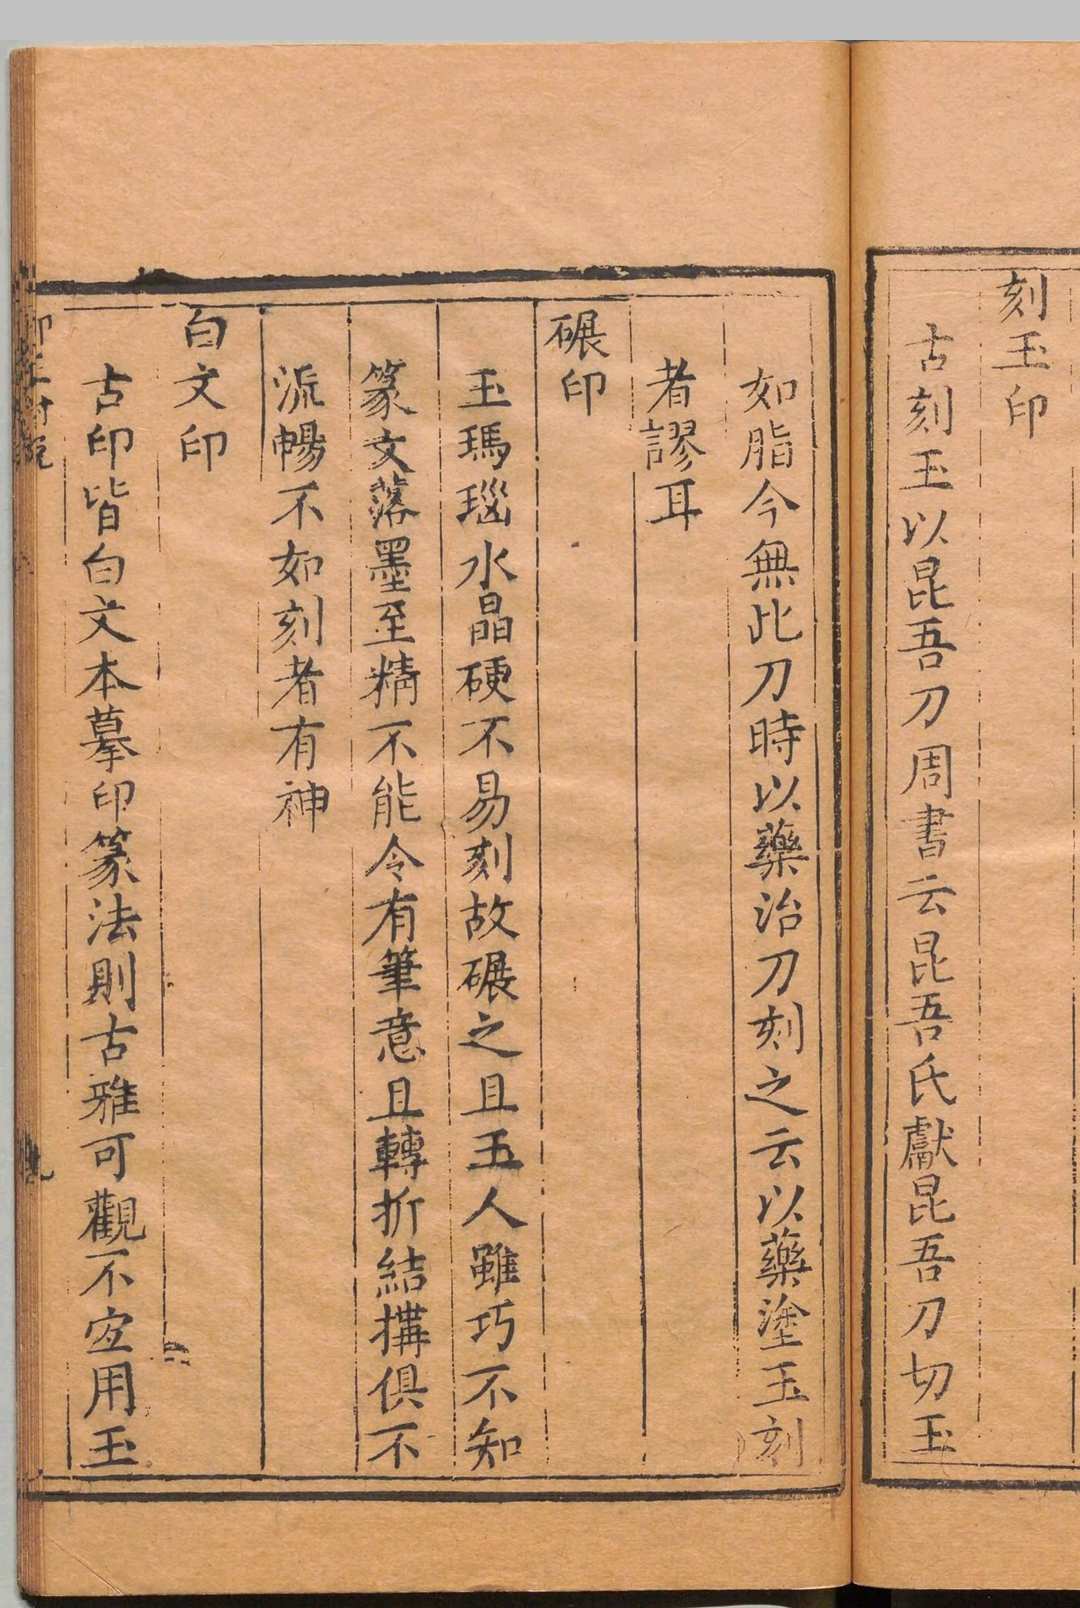 刻玉印
古刻玉以昆吾刀周書云昆吾氏獻昆吾刀切玉
如脂今無此刀時以藥治刀刻之云以藥塗玉刻
者謬耳
碾印
玉瑪瑙水晶硬不易刻故碾之且玉人雖巧不知
篆文落墨至精不能令有筆意且轉折結搆俱不
流暢不如刻者有神
白文印
古印皆白文本摹印篆法則古雅可觀不宜用玉